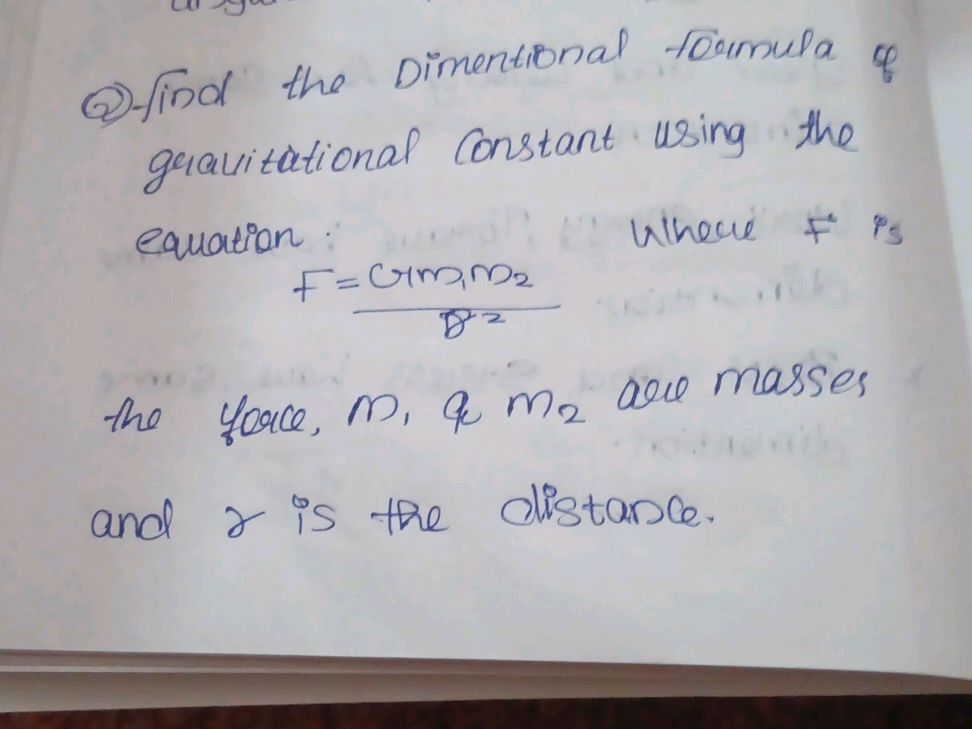 Q) find the Dimentional formula of
gravitational Constant using the
equation: Where F is
F = Gm1m2
r2
the force, m1 & m2 are masses
and r is the distance.